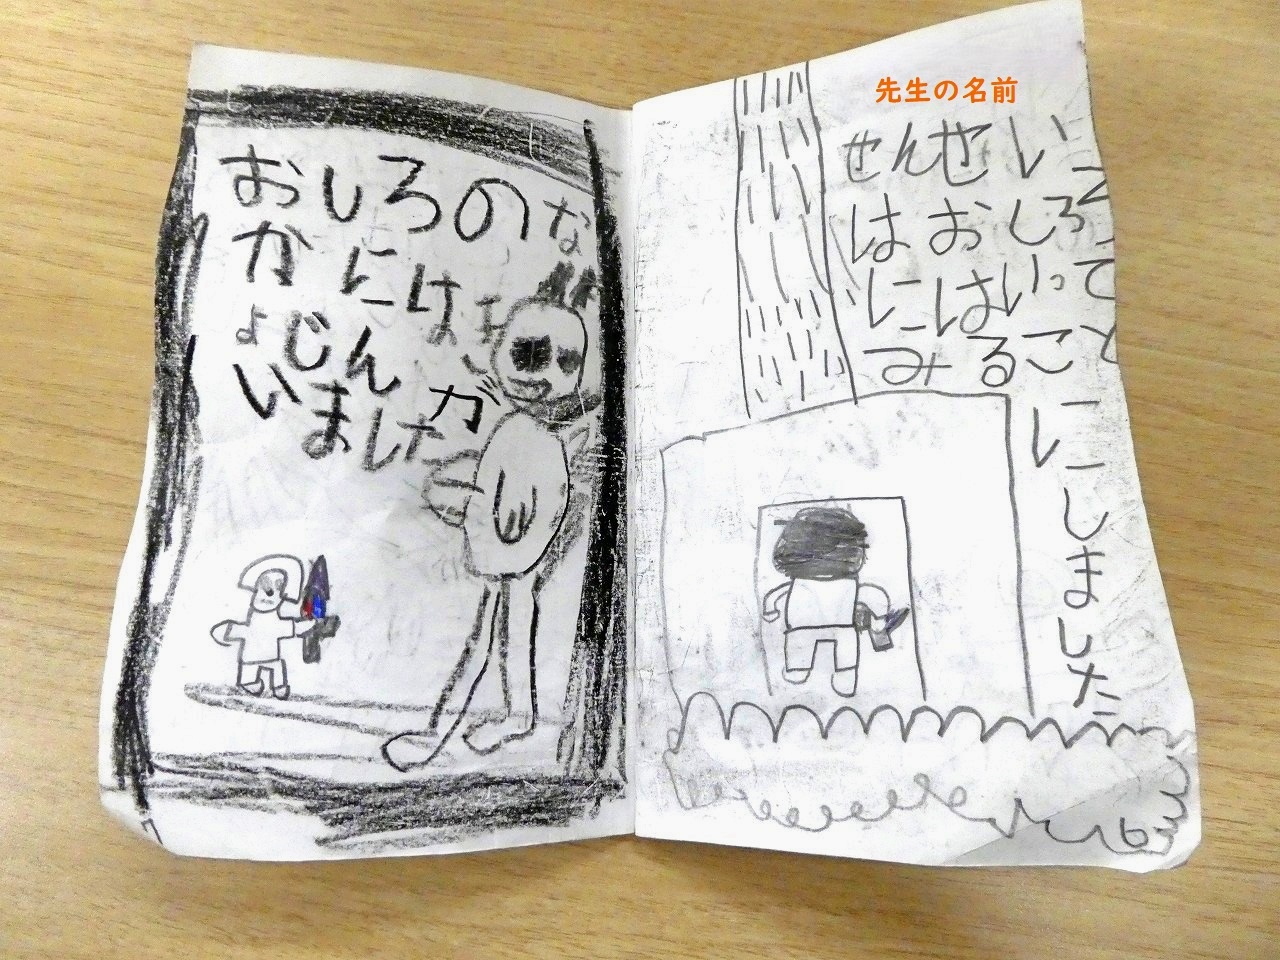 先生の名前
せんせい
はおしろ
にはいって
みること
にしました
6
おしろのな
かにはき
ょじんが
いました
7